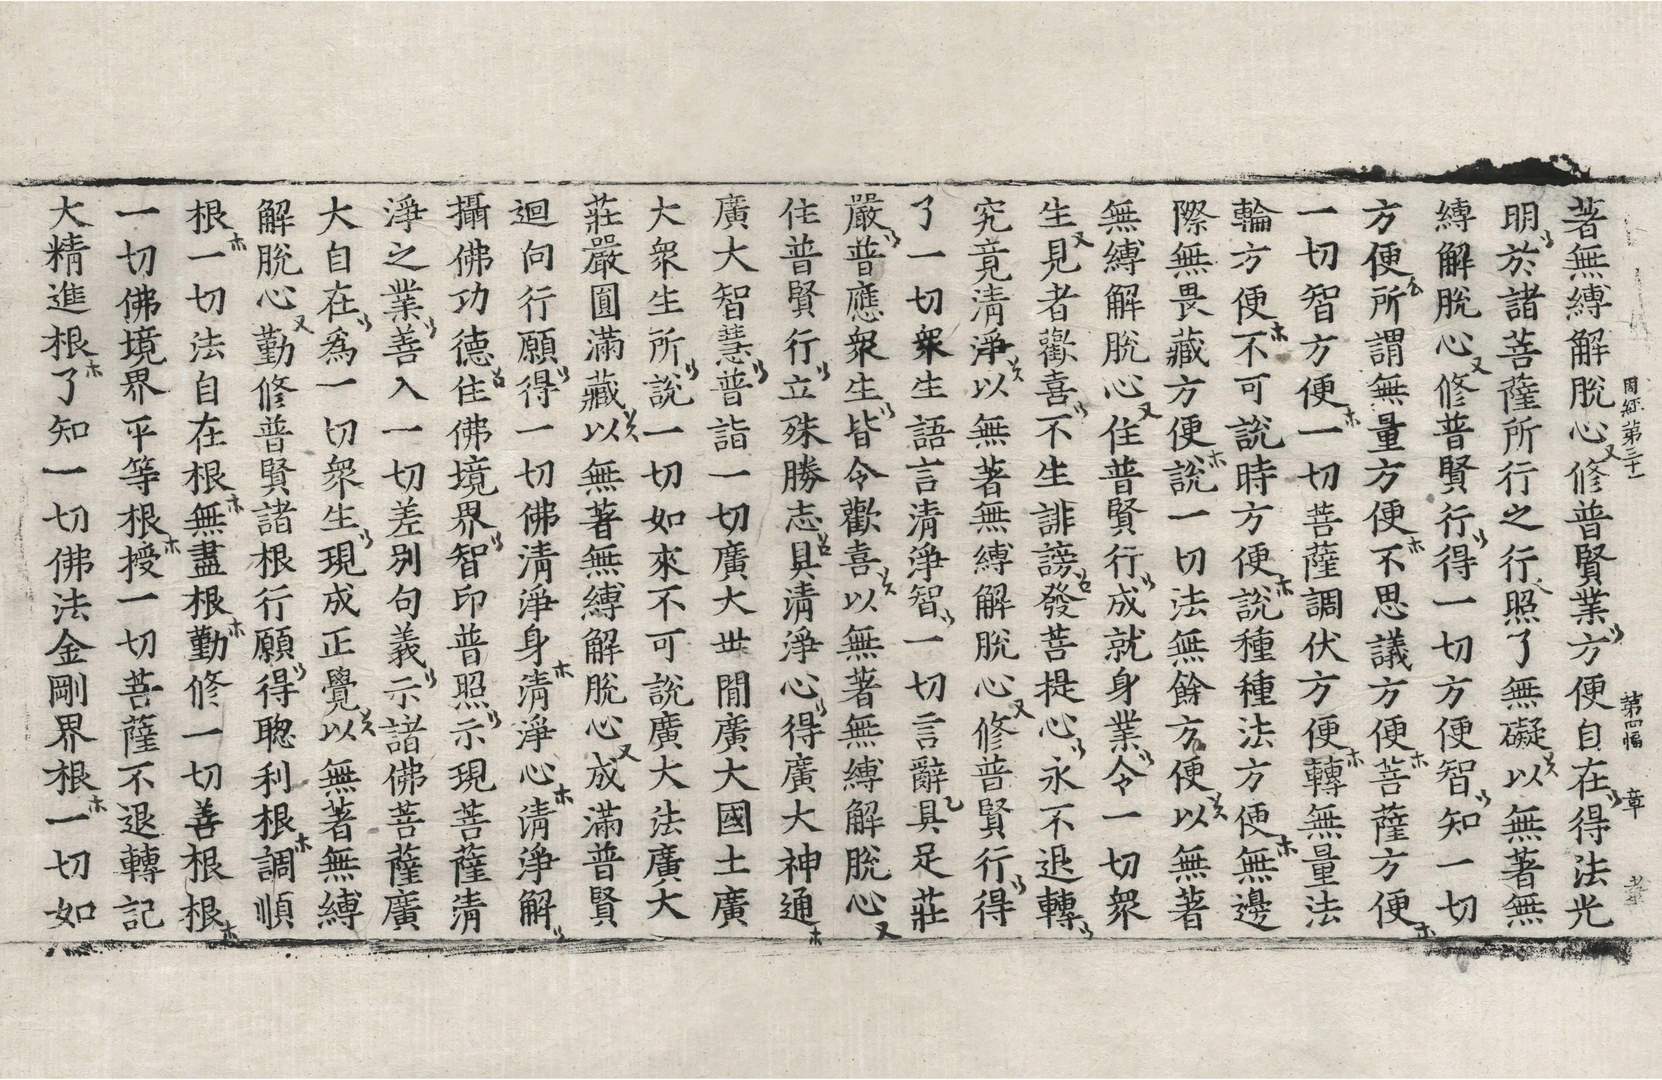 周經第三十一　第四幅　章
著無縛解脫心修普賢業方便自在得法光
明於諸菩薩所行之行照了無礙以無著無
縛解脫心修普賢行得一切方便智知一切
方便所謂無量方便不思議方便菩薩方便
一切智方便一切菩薩調伏方便轉無量法
輪方便不可說時方便說種種法方便無邊
際無畏藏方便說一切法無餘方便以無著
無縛解脫心住普賢行成就身業令一切衆
生見者歡喜不生誹謗發菩提心永不退轉
究竟清淨以無著無縛解脫心修普賢行得
了一切衆生語言清淨智一切言辭具足莊
嚴普應衆生皆令歡喜以無著無縛解脫心
住普賢行立殊勝志具清淨心得廣大神通
廣大智慧普詣一切廣大世間廣大國土廣
大衆生所說一切如來不可說廣大法廣大
莊嚴圓滿藏以無著無縛解脫心成滿普賢
迴向行願得一切佛清淨身清淨心清淨解
攝佛功德住佛境界智印普照示現菩薩清
淨之業善入一切差別句義示諸佛菩薩廣
大自在爲一切衆生現成正覺以無著無縛
解脫心勤修普賢諸根行願得聰利根調順
根一切法自在根無盡根勤修一切善根根
一切佛境界平等根授一切菩薩不退轉記
大精進根了知一切佛法金剛界根一切如